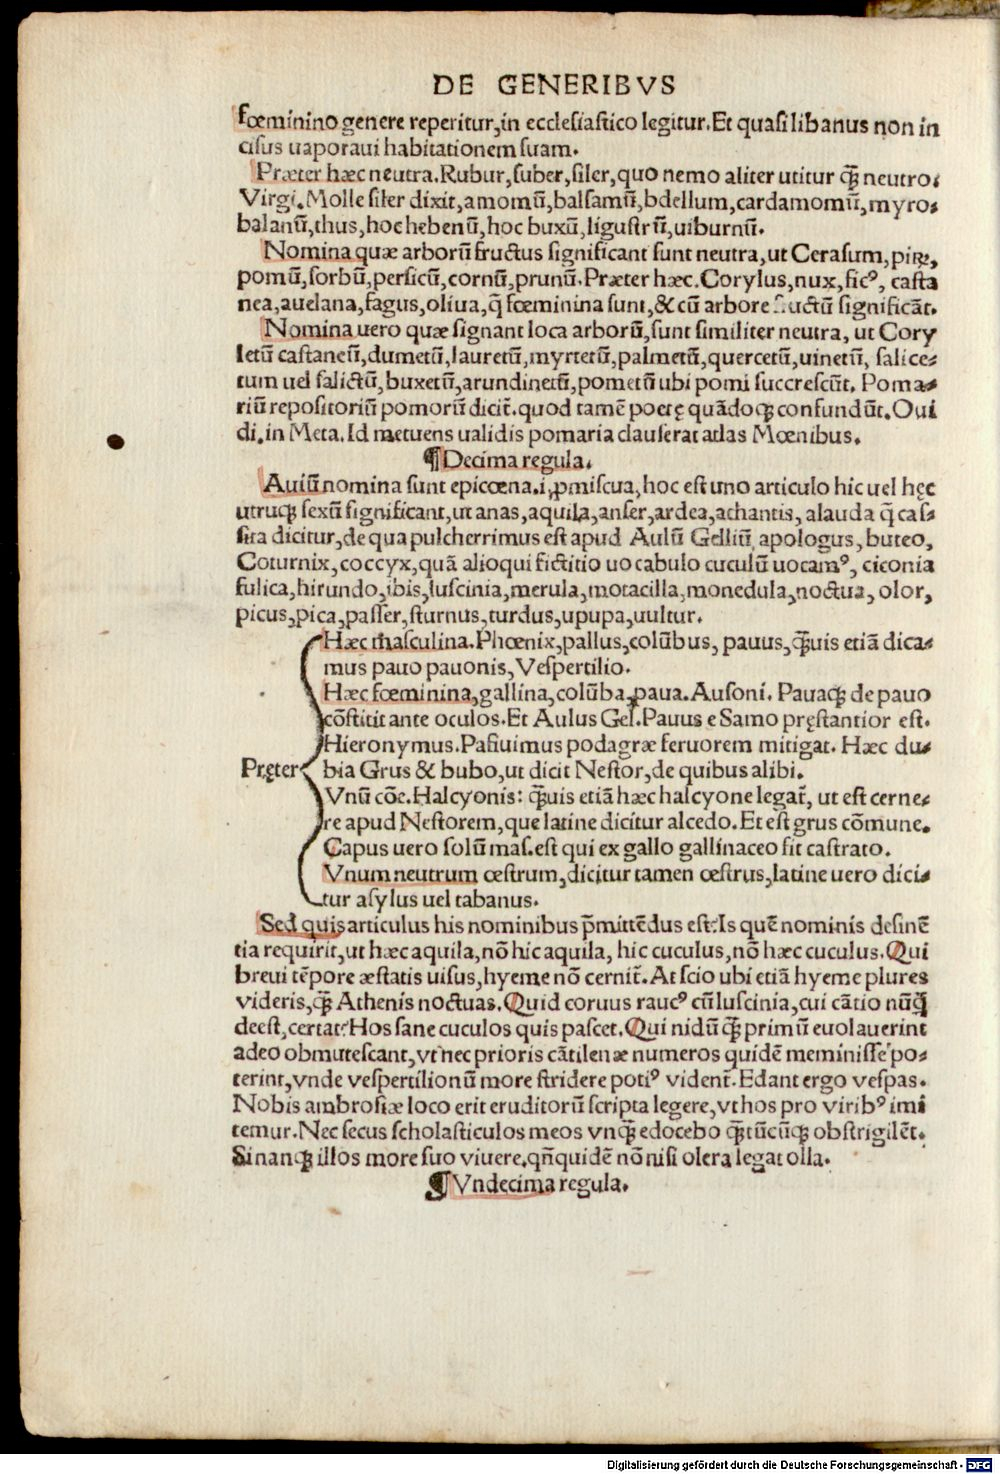 DE GENERIBVS
fœminino genere reperitur,in ecclesiastico legitur.Et quasi libanus non in
cisus uaporaui habitationem suam.
Præter hæc neutra.Rubur,suber,siler,quo nemo aliter utitur qꝫ̃ neutro.
Virgi.Molle siler dixit,amomũ,balsamũ,bdellum,cardamomũ,myro-
balanũ,thus,hoc hebenũ,hoc buxũ,ligustrũ,uiburnũ.
Nomina quæ arborũ fructus significant sunt neutra,ut Cerasum,piꝝ,
pomũ,sorbũ,persicũ,cornũ,prunũ.Præter hæc.Corylus,nux,ficꝰ, casta
nea,auelana,fagus,oliua,q̃ fœminina sunt,& cũ arbore fructũ significãt.
Nomina uero quæ signant loca arborũ,sunt similiter neutra, ut Cory
letũ castaneũ,dumetũ,lauretũ,myrtetũ,palmetũ,quercetũ,uinetũ, salice-
tum uel salictũ,buxetũ,arundinetũ,pometũ ubi pomi succrescũt. Poma-
riũ repositoriũ pomorũ dicit̃.quod tamẽ poetę quãdoqꝫ confundũt.Oui
di.in Meta.Id metuens ualidis pomaria clauserat atlas Mœnibus.
¶ Decima regula.
Auiũ nomina sunt epicœna.i,ꝓmiscua,hoc est uno articulo hic uel hęc
utrucqꝫ sexũ significant,ut anas,aquila,anser,ardea,achantis, alauda q̃ cas-
sita dicitur,de qua pulcherrimus est apud Aulũ Gelliũ, apologus, buteo,
Coturnix,coccyx,quã alioqui fictitio uocabulo cuculũ uocamꝰ, ciconia
fulica,hirundo,ibis,luscinia,merula,motacilla,monedula,noctua, olor,
picus,pica,passer,sturnus,turdus,upupa,uultur.
Hæc masculina.Phœnix,pallus,colũbus, pauus,qꝫ̃uis etiã dica-
mus pauo pauonis,Vespertilio.
Hæc fœminina,gallina,colũba,paua.Ausoni. Pauaqꝫ de pauo
cõstitit ante oculos.Et Aulus Gel.Pauus e Samo pręstantior est.
Hieronymus.Pasiuimus podagræ feruorem mitigat. Hæc du-
Pręter bia Grus & bubo,ut dicit Nestor,de quibus alibi.
Vnũ cõe.Halcyonis: qꝫ̃uis etiã hæc halcyone legat̃, ut est cerne-
re apud Nestorem,que latine dicitur alcedo.Et est grus cõmune.
Capus uero solũ mas.est qui ex gallo gallinaceo fit castrato.
Vnum neutrum œstrum,dicitur tamen œstrus,latine uero dici-
tur asylus uel tabanus.
Sed quis articulus his nominibus p̃mittẽdus est?Is quẽ nominis desinẽ
tia requirit,ut hæc aquila,nõ hic aquila, hic cuculus,nõ hæc cuculus.Qui
breui tẽpore æstatis uisus,hyeme nõ cernit̃.At scio ubi etiã hyeme plures
videris,qꝫ̃ Athenis noctuas.Quid coruus raucꝰ cũ luscinia,cui cãtio nũq̃
deest,certat?Hos sane cuculos quis pascet.Qui nidũ qꝫ̃ primũ euolauerint
adeo obmutescant,vt nec prioris cãtilenæ numeros quidẽ meminisse po-
terint,vnde vespertilionũ more stridere potiꝰ vident̃.Edant ergo vespas.
Nobis ambrosiæ loco erit eruditorũ scripta legere,vt hos pro viribꝰ imi
temur.Nec secus scholasticulos meos vnqꝫ̃ edocebo qꝫ̃tũcũqꝫ obstrigilẽt.
Sinanqꝫ illos more suo viuere.qñquidẽ nõ nisi olera legat olla.
¶ Vndecima regula.
Digitalisierung gefördert durch die Deutsche Forschungsgemeinschaft - DFG